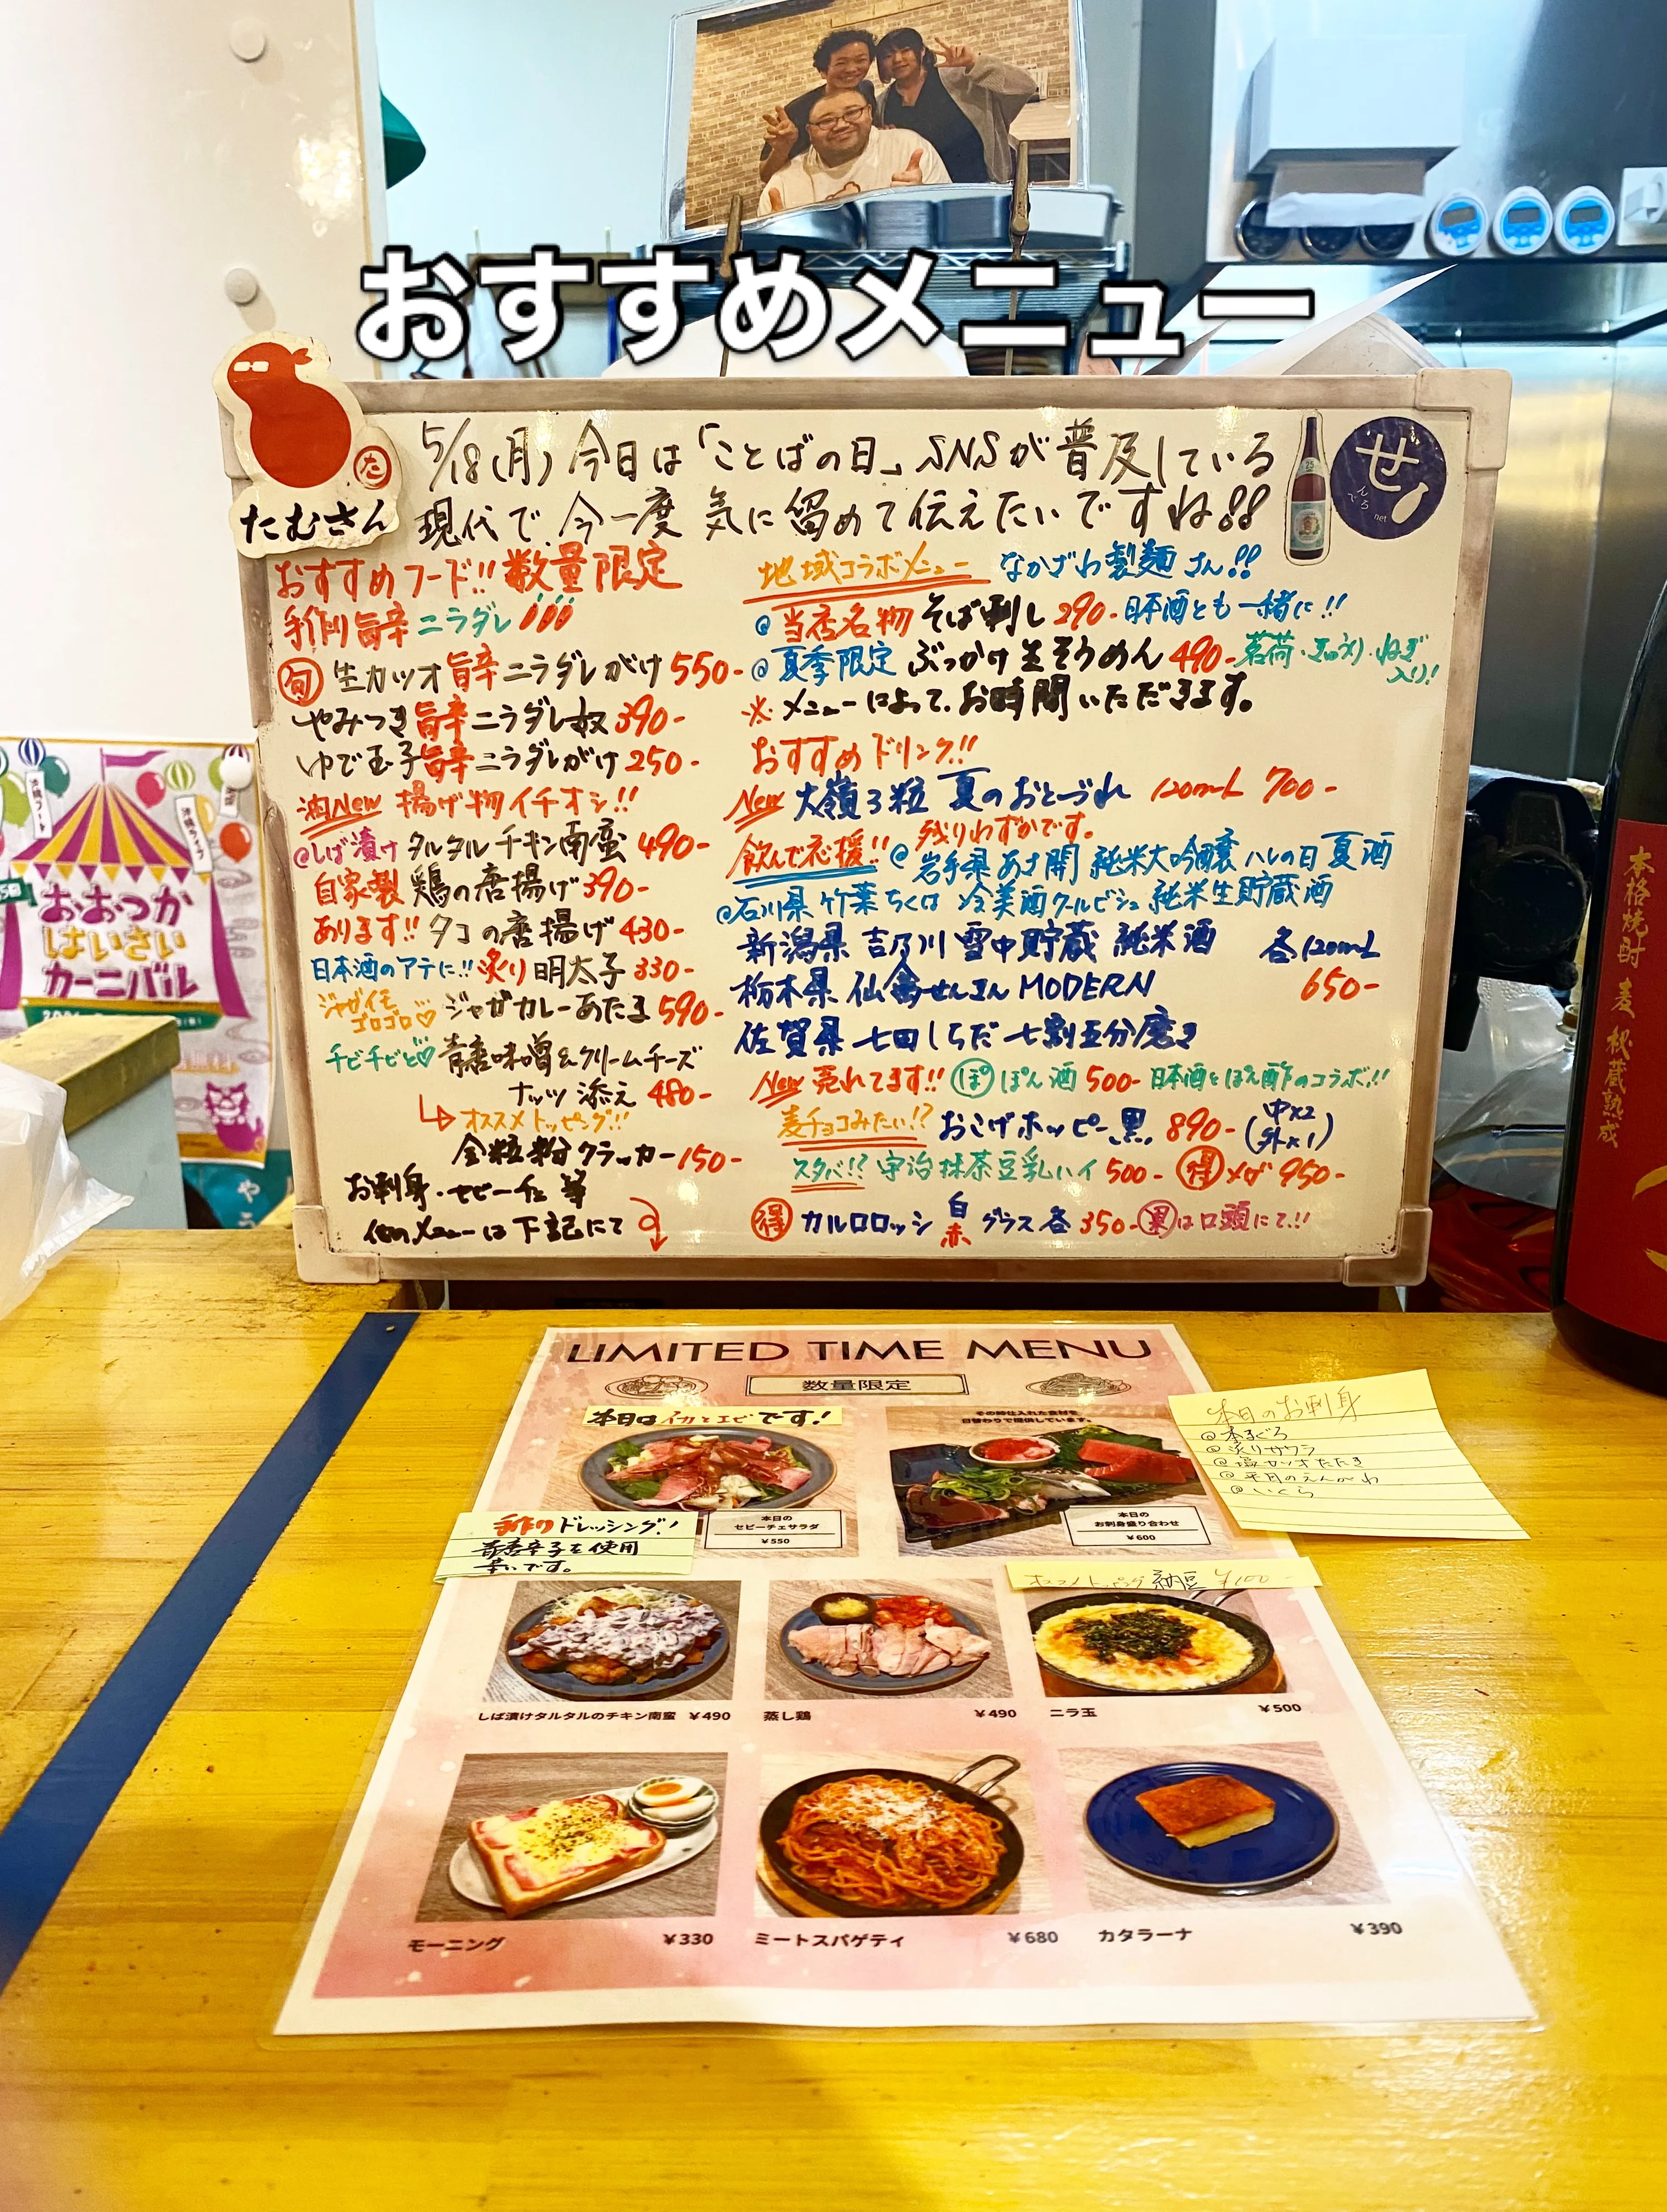 おすすめメニュー
たむさん
た
せ
んべろ
net
5/18(月) 今日は「ことばの日」SNSが普及している
現代で、今一度 気に留めて伝えたいですね!!
おすすめフード!! 数量限定
手作り旨辛 ニラダレ
旬 生カツオ 旨辛 ニラダレがけ 550-
やみつき旨辛ニラダレ奴 390-
ゆで玉子旨辛ニラダレがけ 250-
New 揚げ物イチオシ!!
@しば漬け タルタル チキン南蛮 490-
自家製 鶏の唐揚げ 390-
あります!! タコの唐揚げ 430-
日本酒のアテに!! 炙り 明太子 330-
ジャガイモ
ゴロゴロ♡ ジャガカレーあたま 590-
チビチビと♡ 青唐味噌&クリームチーズ
ナッツ添え 480-
オススメトッピング!!
全粒粉クラッカー 150-
お刺身・セビーチェ 等
他のメニューは下記にて
地域コラボメニュー なかざわ製麺さん!!
@当店名物 そば刺し 290- 日本酒とも一緒に!!
@夏季限定 ぶっかけ生そうめん 490- 茗荷・きゅうり・ねぎ
入り!!
※メニューによって、お時間いただきます。
おすすめドリンク!!
New 大嶺3粒 夏のおとづれ 120mL 700-
残りわずかです。
飲んで応援!! @岩手県 あさ開 純米大吟醸 ハレの日 夏酒
@石川県 竹葉 ちくは 冷美酒クールビシュ 純米生貯蔵酒
新潟県 吉乃川 雪中貯蔵 純米酒 各120mL
栃木県 仙禽せんきん MODERN 650-
佐賀県 七田しちだ 七割五分磨き
New 売れてます!! ぽ ぽん酒 500- 日本酒とぽん酢のコラボ!!
麦チョコみたい!? おこげホッピー黒 890- (中×2
外×1)
スタバ!? 宇治抹茶豆乳ハイ 500- 得 メガ 950-
得 カルロロッシ 白 赤 グラス各 350- 裏は口頭にて!!
おおつか
はいさい
カーニバル
本格焼酎 麦 秘蔵熟成
LIMITED TIME MENU
数量限定
本日はイカとエビです!
その時仕入れた食材を
日替わりで提供しています。
本日のお刺身
@本まぐろ
@炙りサワラ
@塩カツオたたき
@平目のえんがわ
@いくら
本日の
セビーチェサラダ
¥550
本日の
お刺身盛り合わせ
¥600
手作りドレッシング!
青唐辛子を使用
辛いです。
オススメトッピング 納豆 ¥100-
しば漬けタルタルのチキン南蛮 ¥490
蒸し鶏 ¥490
ニラ玉 ¥500
モーニング ¥330
ミートスパゲティ ¥680
カタラーナ ¥390